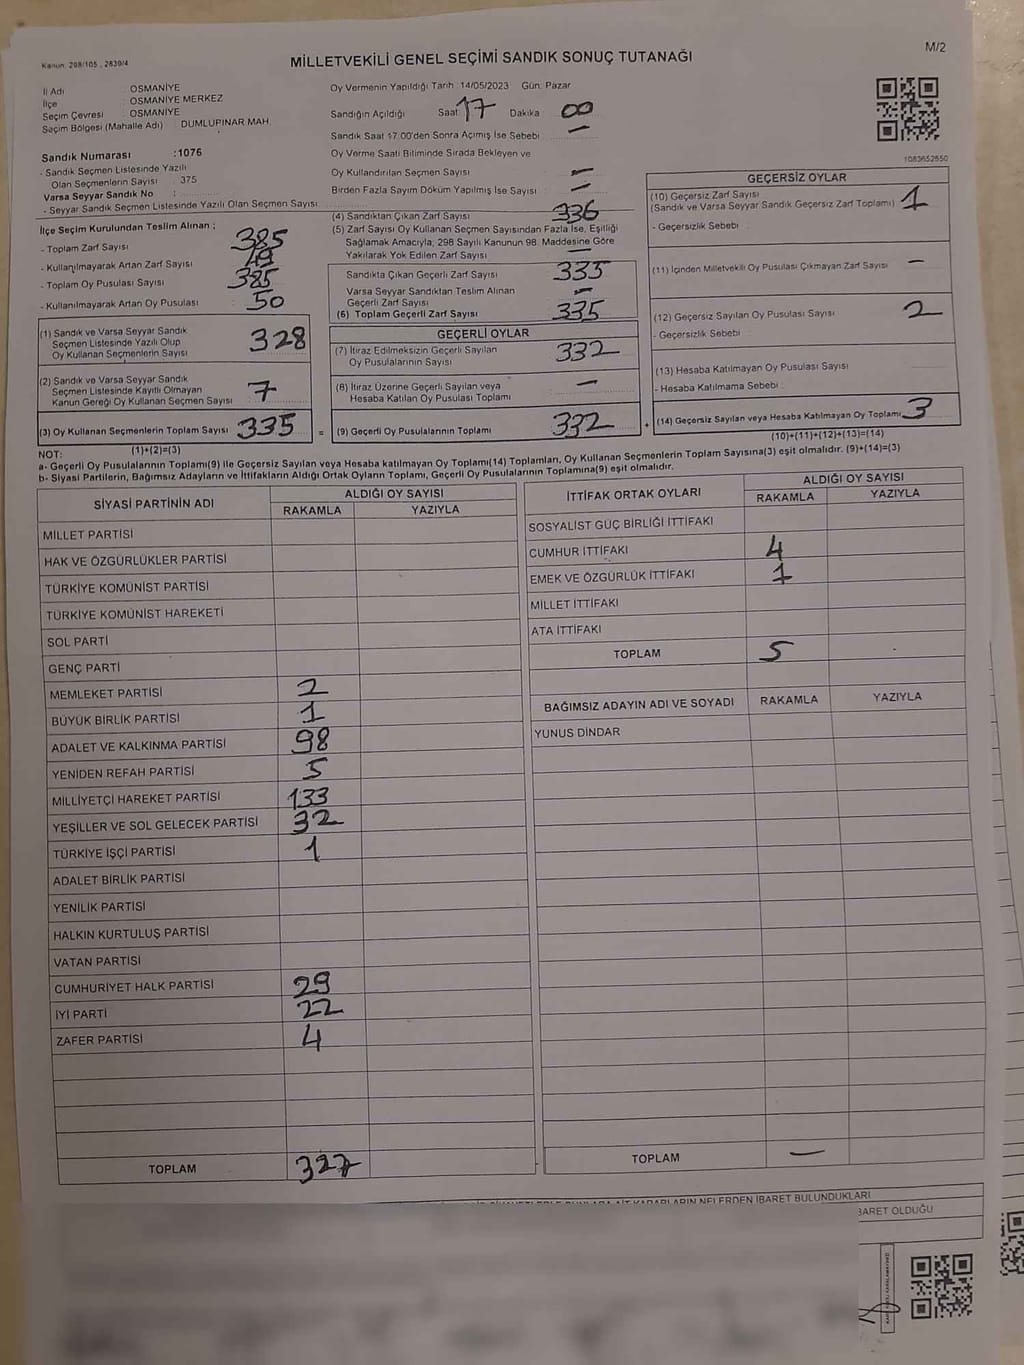 Kanun: 298/105 , 2839/4
MİLLETVEKİLİ GENEL SEÇİMİ SANDIK SONUÇ TUTANAĞI
M/2
İl Adı : OSMANİYE
İlçe : OSMANİYE MERKEZ
Seçim Çevresi : OSMANİYE
Seçim Bölgesi (Mahalle Adı) : DUMLUPINAR MAH.
Sandık Numarası :1076
- Sandık Seçmen Listesinde Yazılı
Olan Seçmenlerin Sayısı : 375
Varsa Seyyar Sandık No :
- Seyyar Sandık Seçmen Listesinde Yazılı Olan Seçmen Sayısı
Oy Vermenin Yapıldığı Tarih: 14/05/2023 Gün: Pazar
Sandığın Açıldığı Saat 17 Dakika 00
Sandık Saat 17.00'den Sonra Açılmış İse Sebebi —
Oy Verme Saati Bitiminde Sırada Bekleyen ve
Oy Kullandırılan Seçmen Sayısı —
Birden Fazla Sayım Döküm Yapılmış İse Sayısı —
1083652850
İlçe Seçim Kurulundan Teslim Alınan ;
- Toplam Zarf Sayısı 385
- Kullanılmayarak Artan Zarf Sayısı 49
- Toplam Oy Pusulası Sayısı 385
- Kullanılmayarak Artan Oy Pusulası : 50
(1) Sandık ve Varsa Seyyar Sandık
Seçmen Listesinde Yazılı Olup
Oy Kullanan Seçmenlerin Sayısı 328
(2) Sandık ve Varsa Seyyar Sandık
Seçmen Listesinde Kayıtlı Olmayan
Kanun Gereği Oy Kullanan Seçmen Sayısı 7
(3) Oy Kullanan Seçmenlerin Toplam Sayısı 335 =
(4) Sandıktan Çıkan Zarf Sayısı 336
(5) Zarf Sayısı Oy Kullanan Seçmen Sayısından Fazla İse, Eşitliği
Sağlamak Amacıyla, 298 Sayılı Kanunun 98. Maddesine Göre
Yakılarak Yok Edilen Zarf Sayısı —
Sandıkta Çıkan Geçerli Zarf Sayısı 335
Varsa Seyyar Sandıktan Teslim Alınan
Geçerli Zarf Sayısı —
(6) Toplam Geçerli Zarf Sayısı 335
GEÇERLİ OYLAR
(7) İtiraz Edilmeksizin Geçerli Sayılan
Oy Pusulalarının Sayısı 332
(8) İtiraz Üzerine Geçerli Sayılan veya
Hesaba Katılan Oy Pusulası Toplamı —
(9) Geçerli Oy Pusulalarının Toplamı 332 +
GEÇERSİZ OYLAR
(10) Geçersiz Zarf Sayısı
(Sandık ve Varsa Seyyar Sandık Geçersiz Zarf Toplamı) 1
- Geçersizlik Sebebi :
(11) İçinden Milletvekili Oy Pusulası Çıkmayan Zarf Sayısı —
(12) Geçersiz Sayılan Oy Pusulası Sayısı 2
- Geçersizlik Sebebi :
(13) Hesaba Katılmayan Oy Pusulası Sayısı
- Hesaba Katılmama Sebebi :
(14) Geçersiz Sayılan veya Hesaba Katılmayan Oy Toplamı 3
NOT: (1)+(2)=(3)
(10)+(11)+(12)+(13)=(14)
a- Geçerli Oy Pusulalarının Toplamı(9) ile Geçersiz Sayılan veya Hesaba katılmayan Oy Toplamı(14) Toplamları, Oy Kullanan Seçmenlerin Toplam Sayısına(3) eşit olmalıdır. (9)+(14)=(3)
b- Siyasi Partilerin, Bağımsız Adayların ve İttifakların Aldığı Ortak Oyların Toplamı, Geçerli Oy Pusulalarının Toplamına(9) eşit olmalıdır.
SİYASİ PARTİNİN ADI ALDIĞI OY SAYISI
RAKAMLA YAZIYLA
MİLLET PARTİSİ
HAK VE ÖZGÜRLÜKLER PARTİSİ
TÜRKİYE KOMÜNİST PARTİSİ
TÜRKİYE KOMÜNİST HAREKETİ
SOL PARTİ
GENÇ PARTİ
MEMLEKET PARTİSİ 2
BÜYÜK BİRLİK PARTİSİ 1
ADALET VE KALKINMA PARTİSİ 98
YENİDEN REFAH PARTİSİ 5
MİLLİYETÇİ HAREKET PARTİSİ 133
YEŞİLLER VE SOL GELECEK PARTİSİ 32
TÜRKİYE İŞÇİ PARTİSİ 1
ADALET BİRLİK PARTİSİ
YENİLİK PARTİSİ
HALKIN KURTULUŞ PARTİSİ
VATAN PARTİSİ
CUMHURİYET HALK PARTİSİ 29
İYİ PARTİ 22
ZAFER PARTİSİ 4
TOPLAM 327
İTTİFAK ORTAK OYLARI ALDIĞI OY SAYISI
RAKAMLA YAZIYLA
SOSYALİST GÜÇ BİRLİĞİ İTTİFAKI
CUMHUR İTTİFAKI 4
EMEK VE ÖZGÜRLÜK İTTİFAKI 1
MİLLET İTTİFAKI
ATA İTTİFAKI
TOPLAM 5
BAĞIMSIZ ADAYIN ADI VE SOYADI RAKAMLA YAZIYLA
YUNUS DİNDAR
TOPLAM —
NELERDEN İBARET BULUNDUKLARI
İBARET OLDUĞU